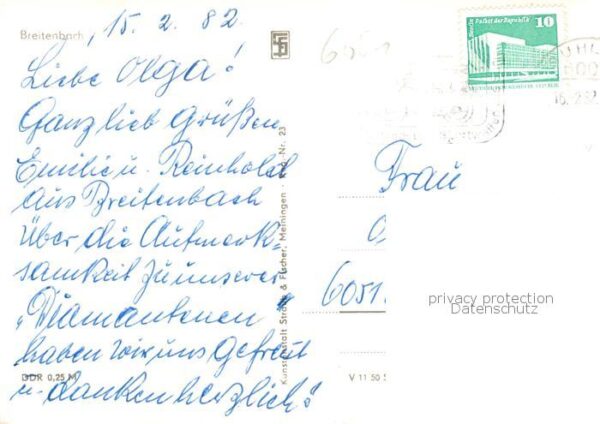 Breitenbach
15. 2. 82
Liebe Olga!
Ganz lieb Grüßen
Emilie u. Reinhold
aus Breitenbach
Über die Aufmerk-
samkeit zu unserer
"Diamantenen"
haben wir uns gefreut
u. danken herzlich!
DDR 0,25 M
Kunstanstalt Straub & Fischer, Meiningen · Reg.-Nr. 23
V 11 50
Berlin Palast der Republik
10
SUHL
15.2.82
Frau
6051
privacy protection
Datenschutz